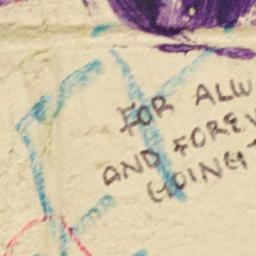 FOR ALW
AND FOREV
GOING T